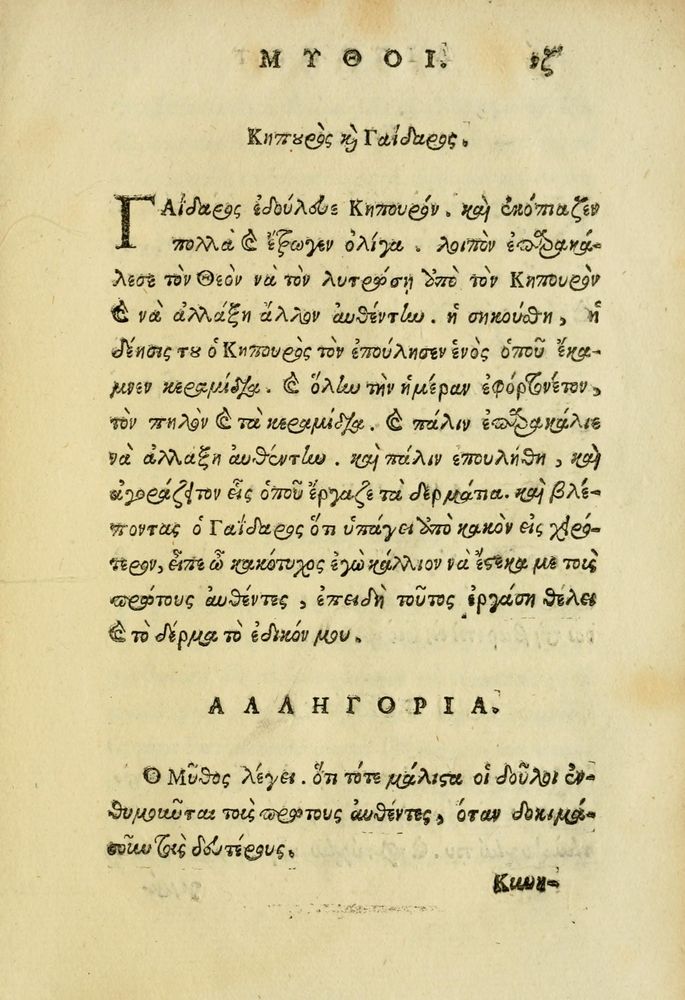 ΜΥΘΟΙ. ιζ
Κηπουρὸς καὶ Γαΐδαρος.
ΓΑΐδαρος ἐδούλευε Κηπουρόν, καὶ ἐκόπιαζεν
πολλὰ καὶ ἔτρωγεν ὀλίγα. λοιπὸν ἐπαρακά-
λεσε τὸν Θεὸν νὰ τὸν λυτρώσῃ ἀπὸ τὸν Κηπουρὸν
καὶ νὰ ἀλλάξη ἄλλον αὐθέντην. ἠσηκούθη, ἡ
δέησις του ὁ Κηπουρὸς τὸν ἐπούλησεν ἑνὸς ὁποῦ ἔκα-
μνεν κεραμίδια. καὶ ὅλην τὴν ἡμέραν ἐφόρτωνέτον,
τὸν πηλὸν καὶ τὰ κεραμίδια. καὶ πάλιν ἐπαρακάλιε
νὰ ἀλλάξη αὐθέντην. καὶ πάλιν επουλήθη, καὶ
ἀγοράζει τον εἷς ὁποῦ ἔργαζε τὰ δερμάτια. καὶ βλέ-
ποντας ὁ Γαΐδαρος ὅτι ὑπάγει ἀπὸ κακὸν εἰς χειρό-
τερον, εἶπε ὦ κακότυχος ἐγὼ κάλλιον νὰ ἔστεκα με τοὺς
πρώτους αὐθέντες, ἐπειδὴ τοῦτος ἐργάση θέλει
καὶ τὸ δέρμα τὸ ἐδικόν μου.
ΑΛΛΗΓΟΡΙΑ.
Ο Μῦθος λέγει. ὅτι τότε μάλιστα οἱ δοῦλοι ἐν-
θυμοιῶνται τοὺς πρώτους αὐθέντες, ὅταν δοκιμά-
σουν τοὺς δευτέρους.
Κυνη-